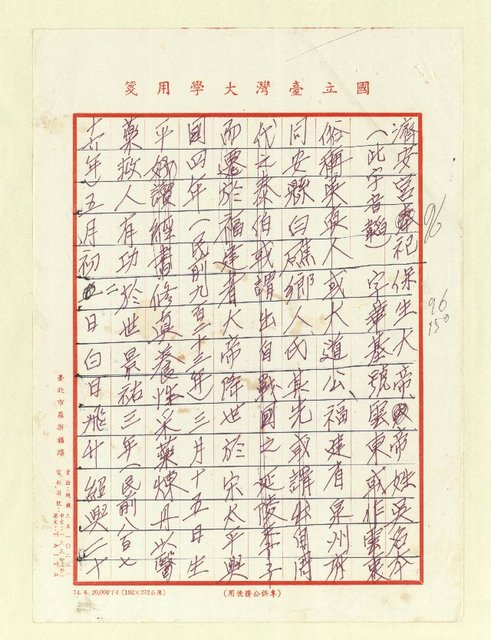 國立臺灣大學用箋
濟安宮奉祀保生大帝，帝姓吳名夲
（此字音韜）字華基號雲東或作雲東
俗稱吳真人或大道公，福建省泉州府
同安縣白礁鄉人氏其先或謂出自周
代之泰伯或謂出自戰國之延陵季子
而遷於福建者大帝降世於宋太平興
國四年（民前九百三十三年）三月十五日生
平好讀經書修真養性采藥煉丹以醫
藥救人有功於世景祐三年（民前八百七
十六年）五月初二日白日飛升紹興二十
96
96
150
臺北市羅斯福路
74. 6. 20,000T4 (192×272公厘)
（專供公務使用）